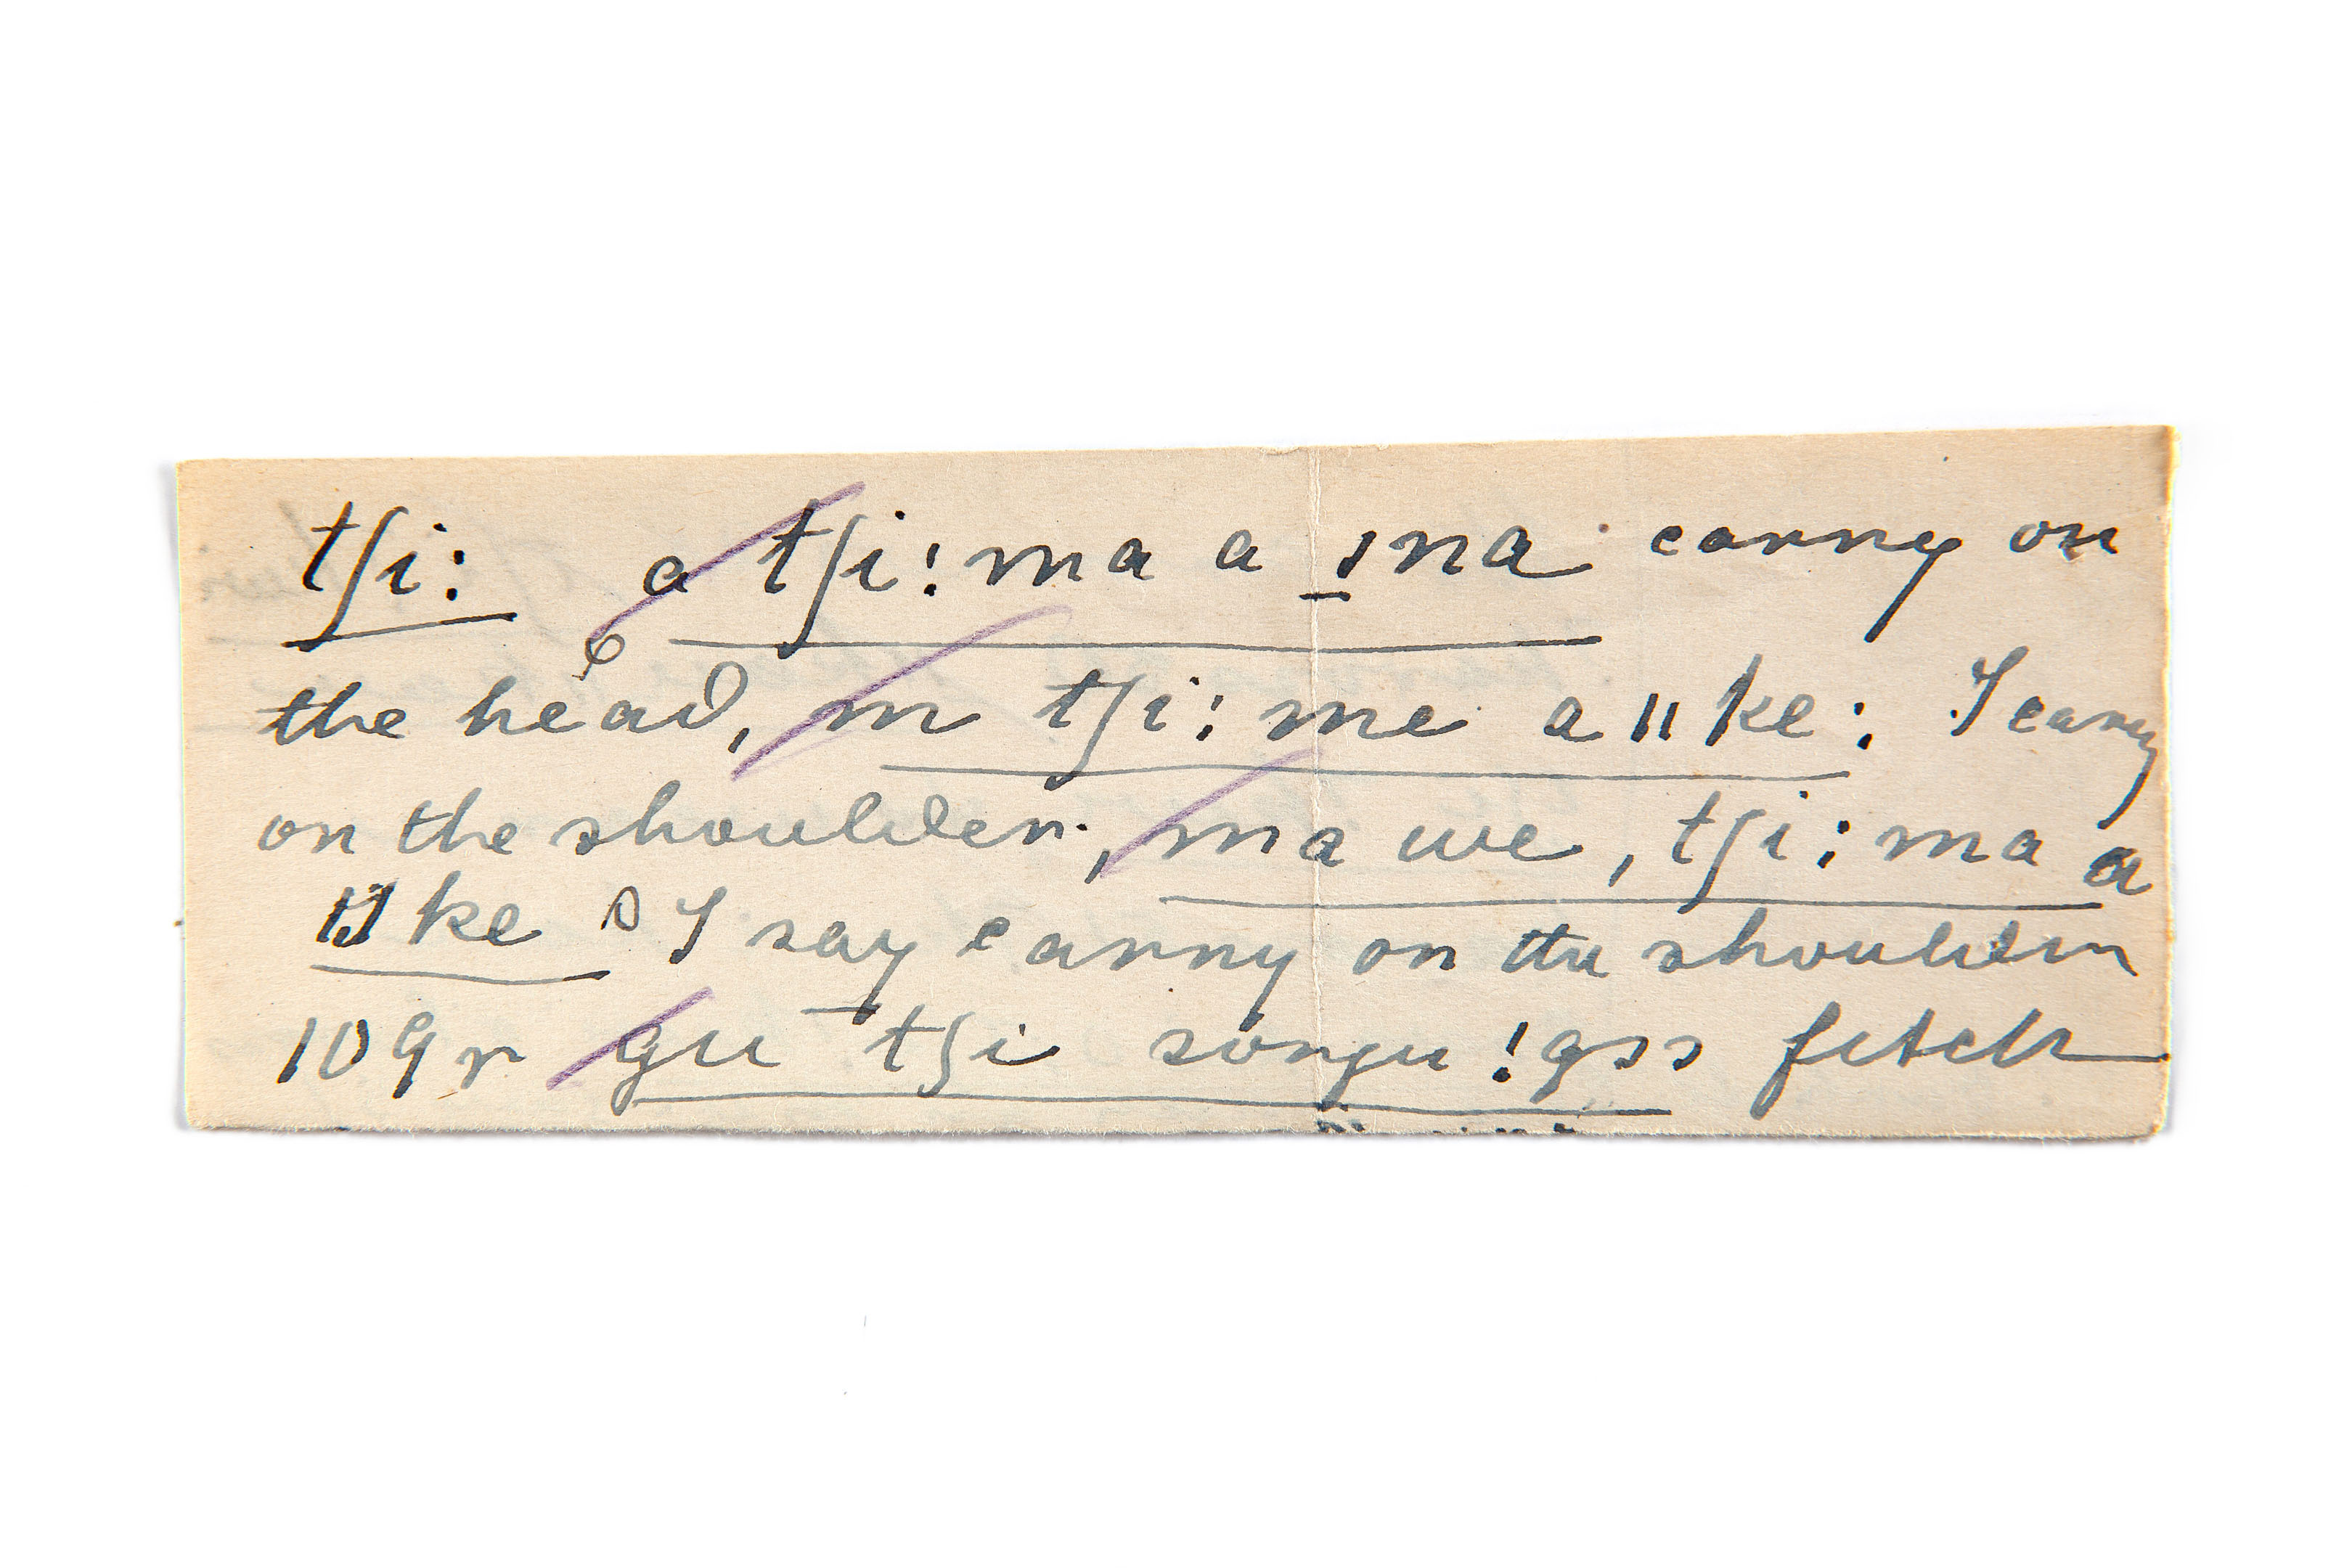 tʃi: a tʃi:ma a ǀna carry on
the head, m tʃi: me a ǁke: I carry
on the shoulder, ma we, tʃi:ma a
ǁke I say carry on the shoulder
109r gu tʃi soŋu !gɔɔ fetch